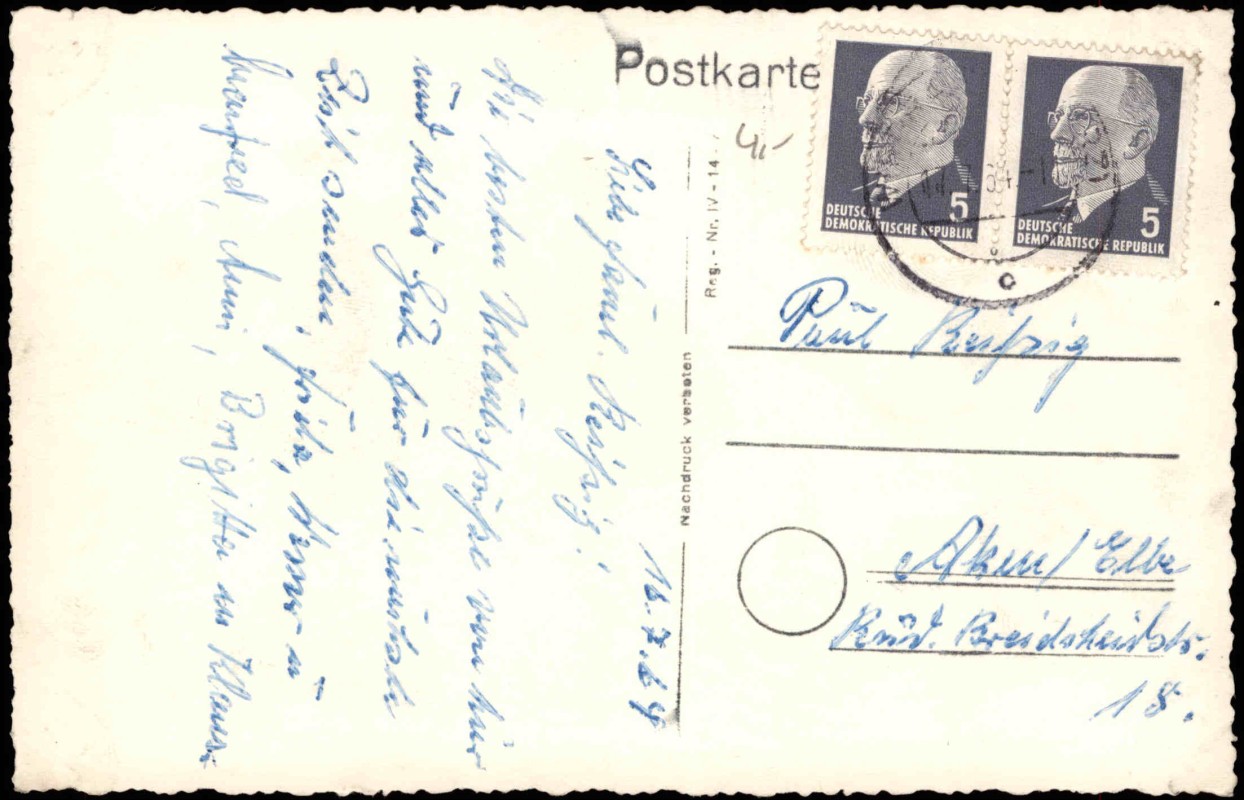 Postkarte
4,-
5
DEUTSCHE
DEMOKRATISCHE REPUBLIK
5
DEUTSCHE
DEMOKRATISCHE REPUBLIK
Reg.-Nr. IV-14
Nachdruck verboten
16.7.64
Liebe Fam.
Die besten Urlaubsgrüße von hier
und alles Gute für die nächste
Zeit senden, Fritz, u
Manfred, Anni, Brigitte u Klaus.
Paul
Aken/Elbe
Rud. Breidscheidstr.
18.